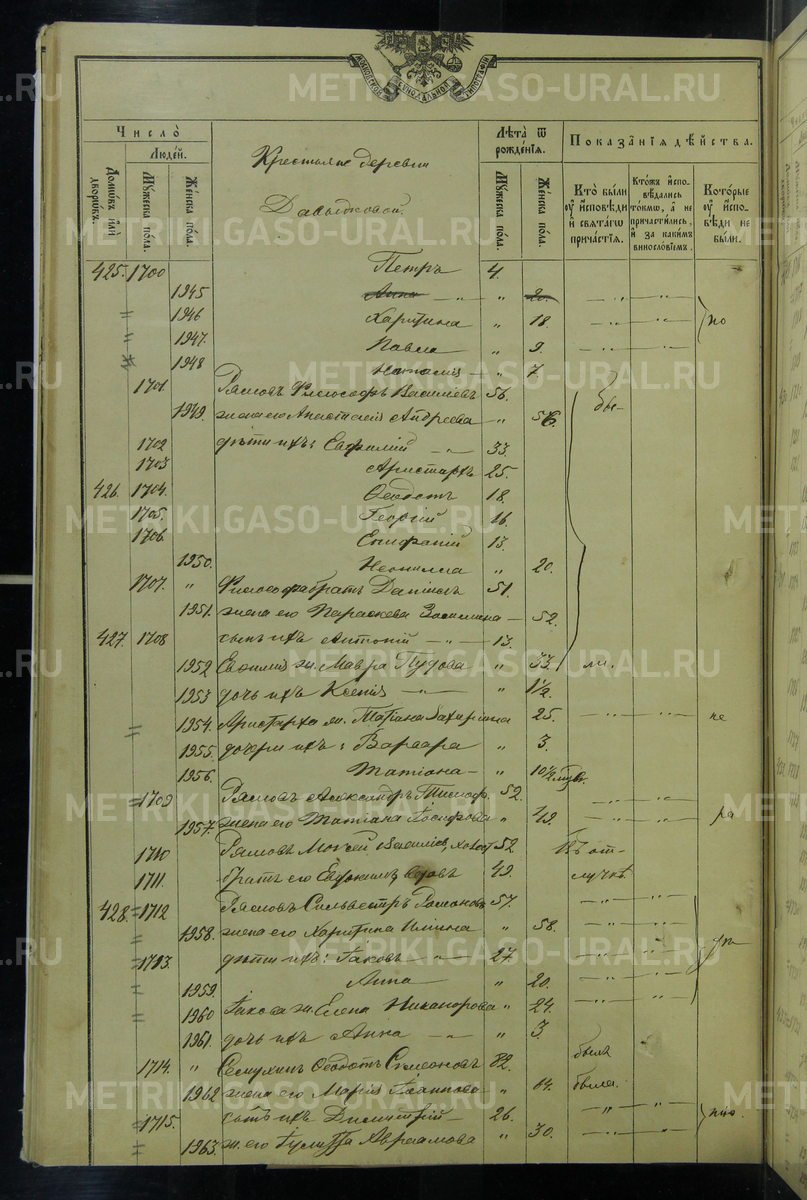 METRIKI.GASO-URAL.RU
Число̀
Людей.
Домѡвъ илѝ дворѡвъ.
Мꙋжеска по́ла.
Же́нска по́ла.
Крестьяне деревни
Давыдковой.
Лѣ́та ѿ рождéнїѧ.
Мꙋжеска по́ла.
Же́нска по́ла.
Показа́нїѧ дѣ́йства.
Кто̀ были ᲂу҆ и҆́сповѣди и҆ свѧта́гѡ прича́стїѧ.
Кто́жъ и҆сповѣ́дались то́кмѡ, а҆ не причасти́лись, и҆ за каки́мъ винослѡ́вїемъ.
Кото́рые ᲂу҆ и҆́сповѣди не бы́ли.
425. 1700 Петръ 4.
1945 Анна — „ — „ 20. — „ — „ —
1946 Харитина „ 18. — „ — „ — по
1947. Павла „ 9. — „ — „ —
1948 Наталія — „ 7.
1701. Рямовъ Философъ Василіевъ 56.
1949. жена его Анастасия Андреева „ 56. бы-
1702 дѣти ихъ: Евфимій — „ — 33.
1703 Аристархъ 25.
426. 1704. Ѳеодотъ 18.
1705. Георгій 16.
1706. Епифаній 13.
1950. Неонилла „ 20.
1707. „ Философа братъ Даніилъ 51.
1951. жена его Параскева Зосимина — 52.
427. 1708 сынъ ихъ Антоній — „ — 13.
1952 Евфимія ж. Мавра Пудова „ 33. ли.
1953 дочь ихъ Ксенія — „ — „ 1½.
1954. Аристарха ж. Татіана Захаріина 25. — „ — „ — не
1955. дочери ихъ: Варвара „ 3.
1956. Татіана — „ 10½
1709 Рямовъ Александръ 52. — „ — „ —
1957. жена его Татіана Іосифова „ 49. — „ — „ — ра
1710 Рямовъ Моѵсей Василіевъ, холост 52 Въ от-
1711. братъ его Евдокимъ, вдовъ 49. лучкѣ.
428. 1712 Рямовъ Сильвестръ Романовъ 57. — „ — „ —
1958. жена его Харитина Ильина „ 58. — „ — „ —
1713. дѣти ихъ: Іаковъ — „ — 27. — „ — „ —
1959. Анна „ 20. — „ — „ —
1960 Іакова ж. Елена Никанорова „ 24. — „ — „ —
1961. дочь ихъ Анна — „ — „ 3.
1714. „ Семухинъ Ѳеодотъ Симеоновъ 82. былъ
1962 жена его Марія Іоаннова „ 64. была.
1715. сынъ ихъ Димитрій 26. — „ — „ —
1963. ж. его Іулитта Авраамова „ 30. — „ — „ —